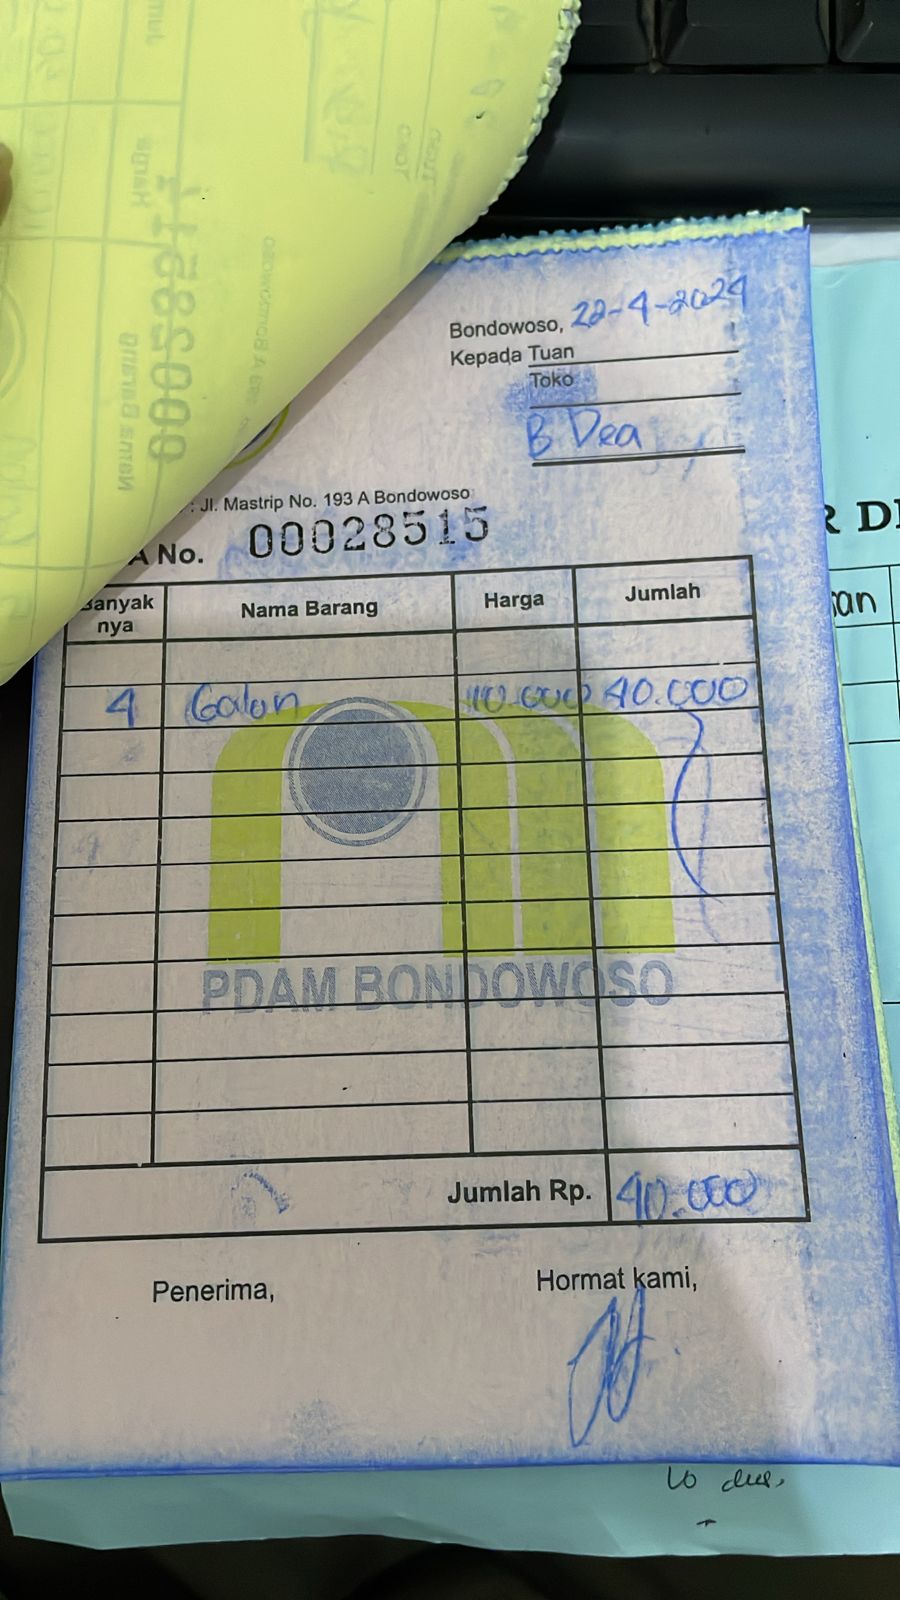 Bondowoso, 22-4-2024
Kepada Tuan
Toko
B Dea
: Jl. Mastrip No. 193 A Bondowoso
A No. 00028515
Banyak nya Nama Barang Harga Jumlah
4 Galon 10.000 40.000
PDAM BONDOWOSO
Jumlah Rp. 40.000
Penerima, Hormat kami,
R D
an
10 dus,